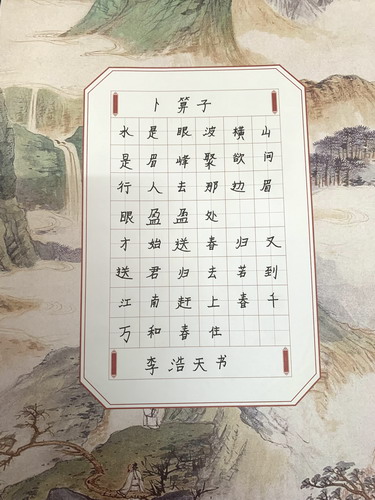 卜算子
水是眼波横山
是眉峰聚欲问
行人去那边眉
眼盈盈处
才始送春归又
送君归去若到
江南赶上春千
万和春住
李浩天书